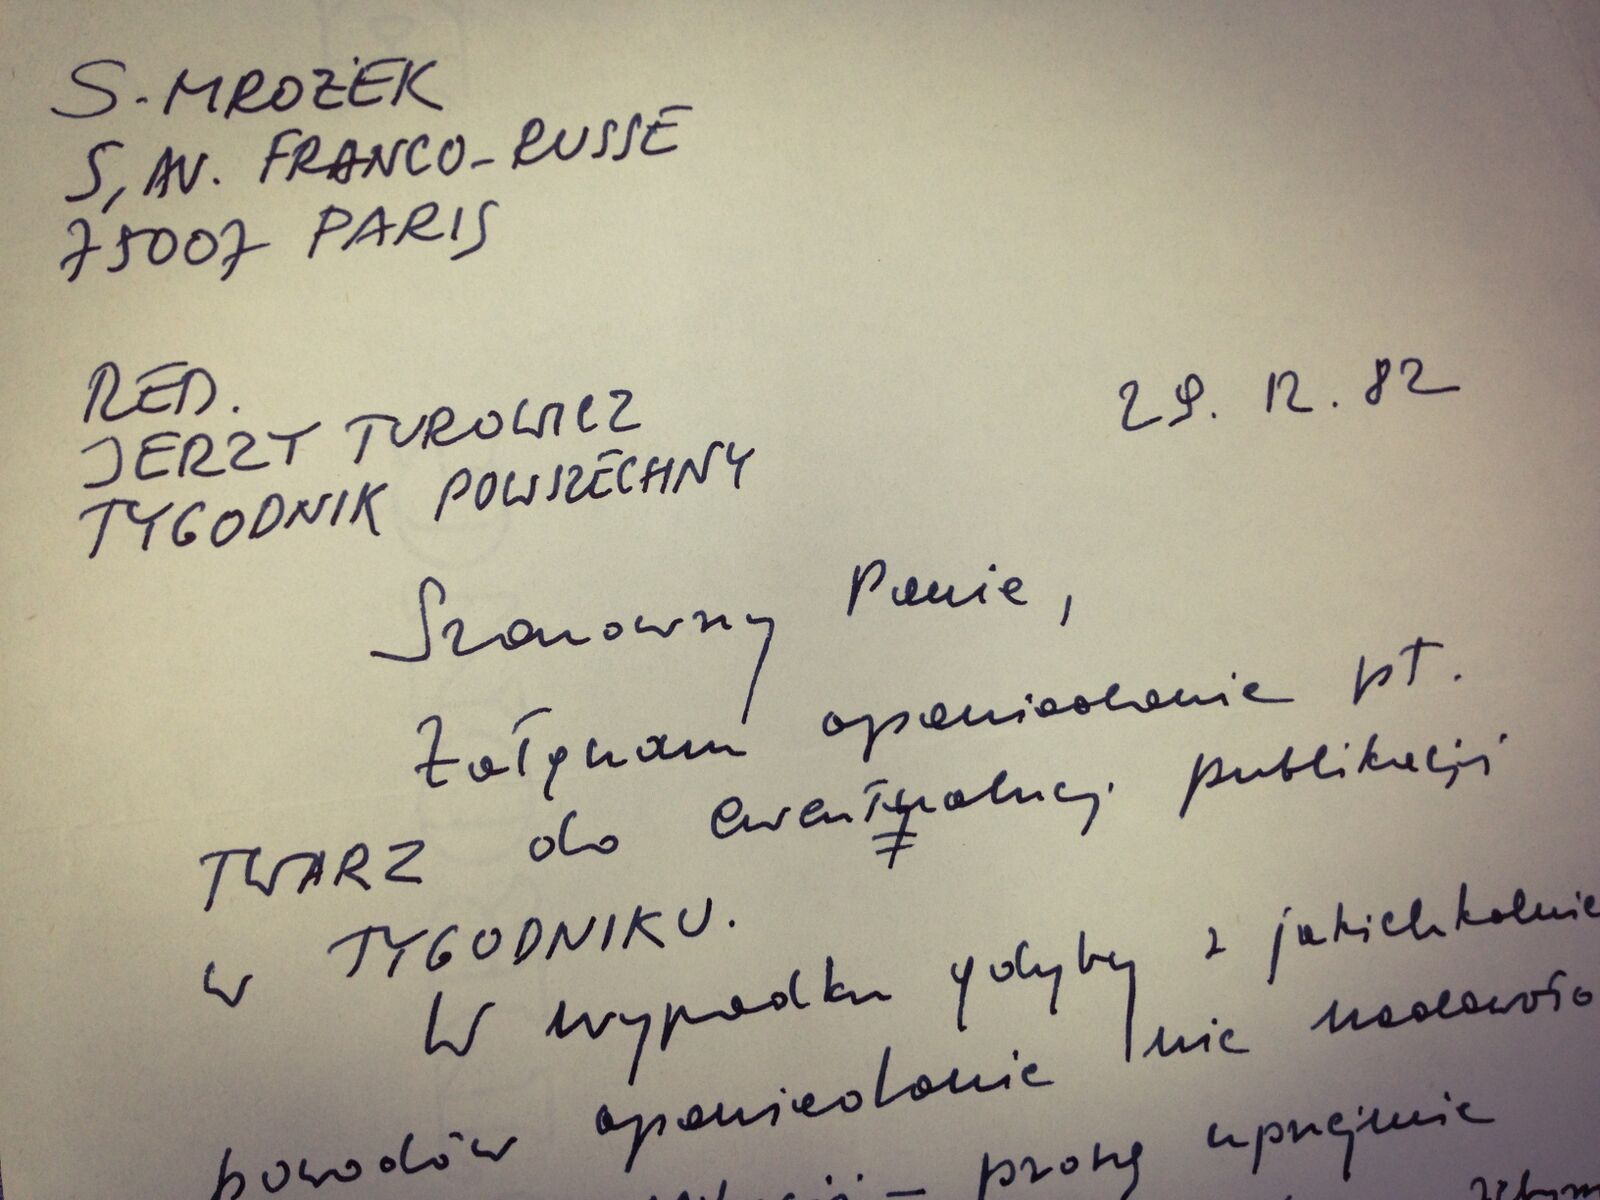 S. MROŻEK
5, AV. FRANCO-RUSSE
75007 PARIS
RED.
JERZY TUROWICZ
TYGODNIK POWSZECHNY
29. 12. 82
Szanowny Panie,
Załączam opowiadanie pt.
TWARZ do ewentualnej publikacji
w TYGODNIKU.
W wypadku gdyby z jakichkolwie
powodów opowiadanie nie nadawało
– proszę uprzejmie